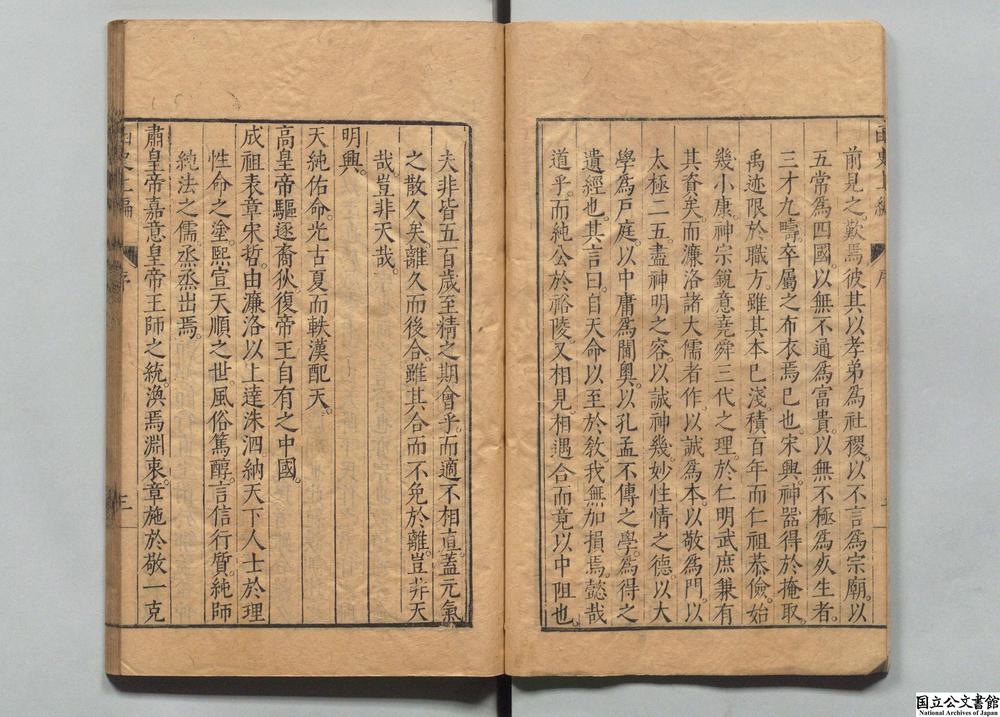 前見之歎焉彼其以孝弟為社稷。以不言為宗廟。以
五常為四國。以無不通為富貴。以無不極為久生者。
三才九疇。卒屬之布衣焉已也。宋興。神器得於掩取。
禹迹限於職方。雖其本已淺。積百年而仁祖恭儉。始
幾小康。神宗銳意堯舜三代之理。於仁明武庶兼有
其資矣。而濂洛諸大儒者作。以誠為本。以敬為門。以
太極二五。盡神明之容。以誠神幾。妙性情之德。以大
學為戶庭。以中庸為閫奧。以孔孟不傳之學。為得之
遺經也。其言曰。自天命以至於教。我無加損焉。懿哉
道乎。而純公於裕陵。又相見相遇合而竟以中阻也。
夫非皆五百歲至精之期會乎。而適不相直。蓋元氣
之散久矣。離久而後合。雖其合而不免於離。豈非天
哉。豈非天哉。
明興。
天純佑命。光古夏而軼漢配天。
高皇帝驅逐裔狄。復帝王自有之中國。
成祖表章宋哲。由濂洛以上達洙泗。納天下人士於理
性命之塗。熙宣天順之世。風俗篤醇。言信行質。純師
純法之儒。烝烝出焉。
肅皇帝嘉意皇帝王師之統。渙焉淵衷。章施於敬一。克
函史上編
序
三
国立公文書館
National Archives of Japan